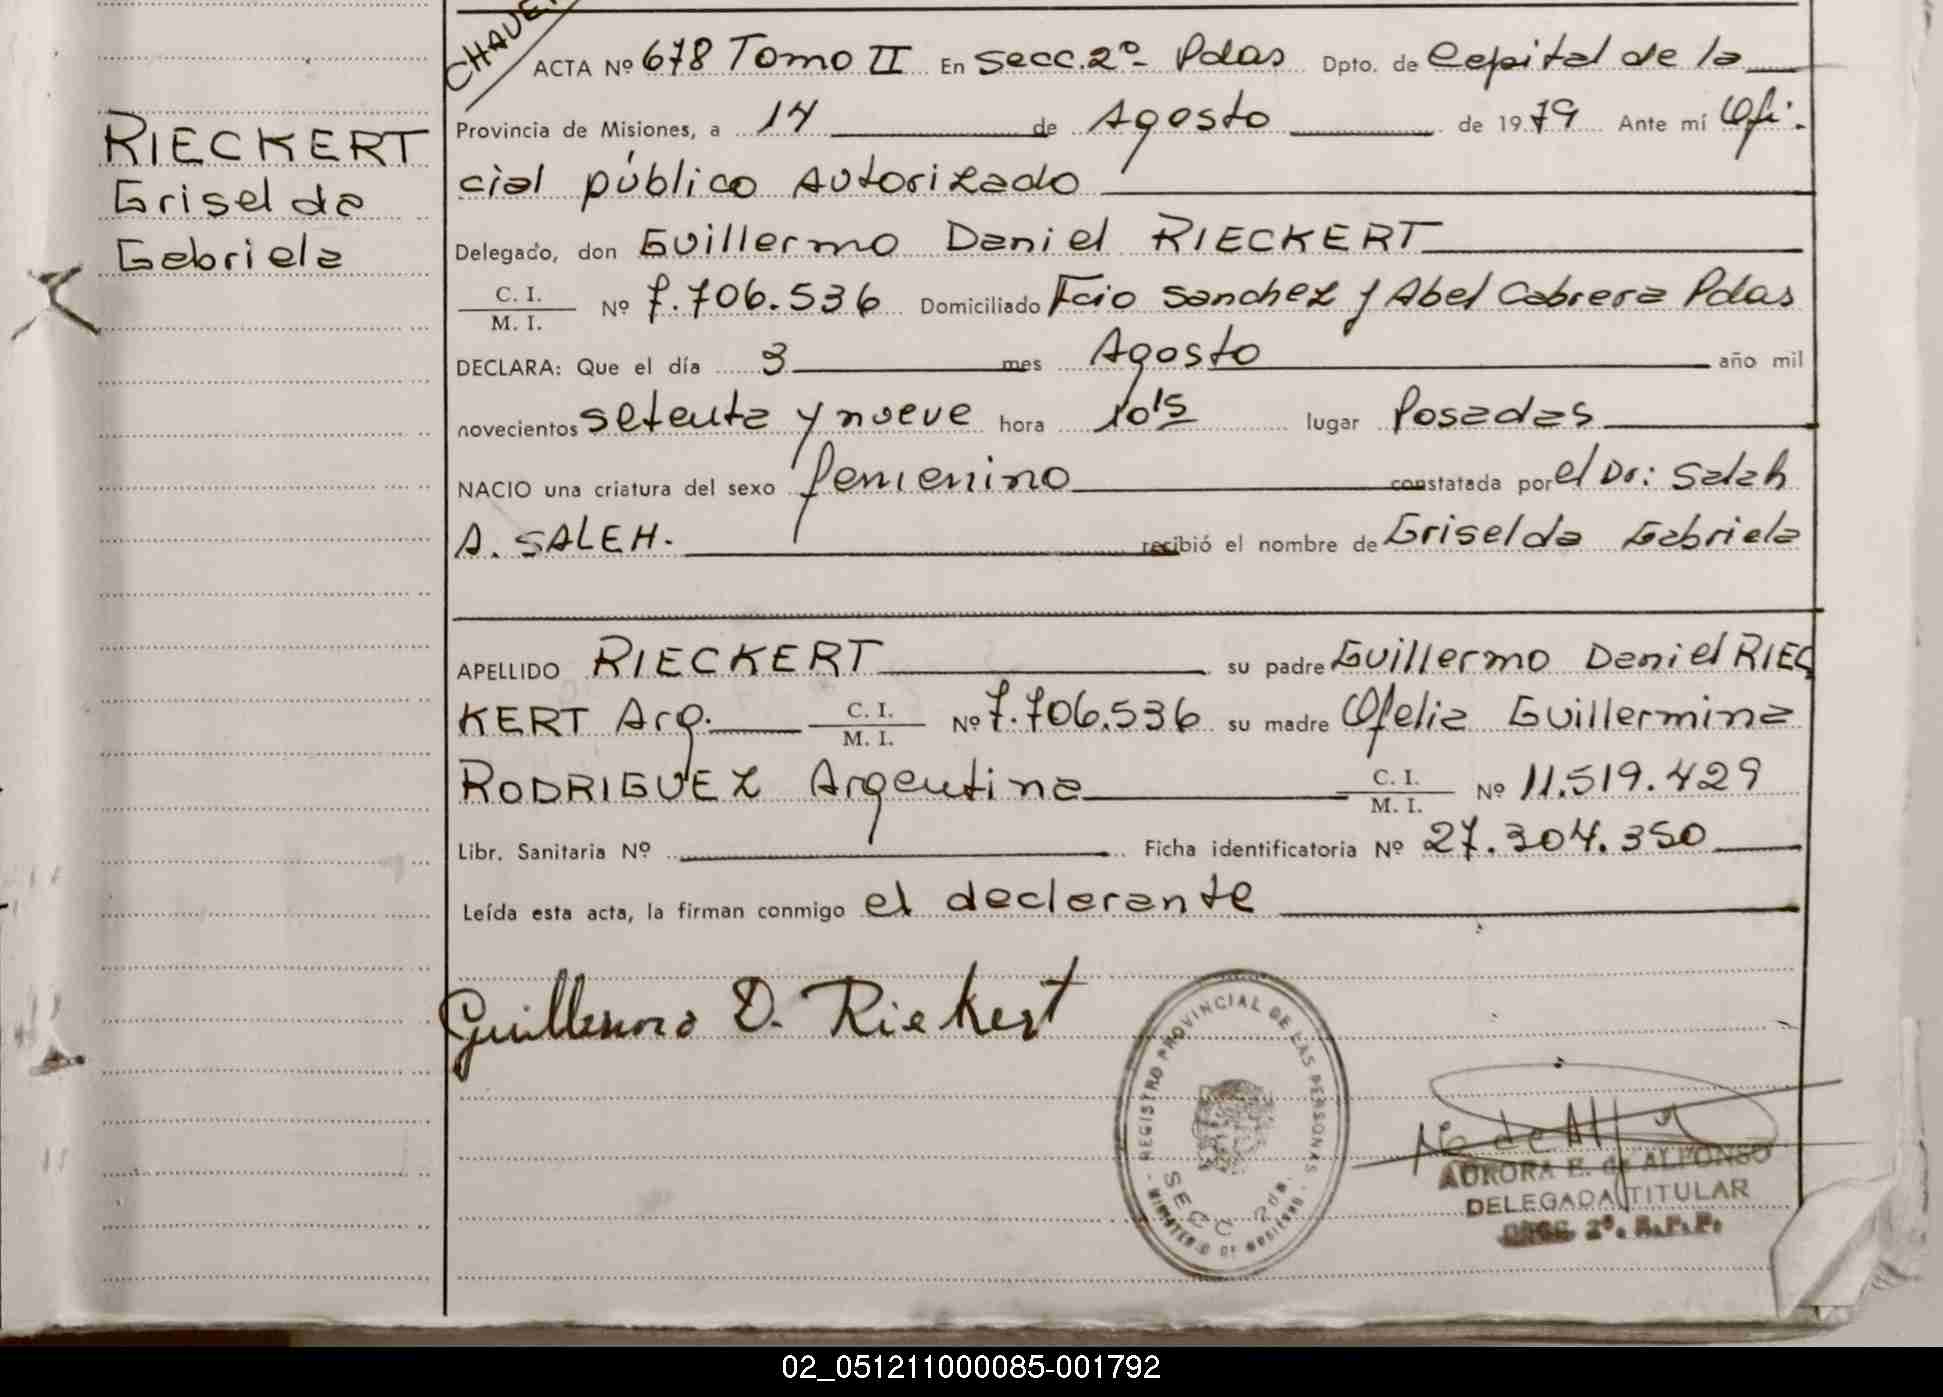 CHAVE
ACTA Nº 678 Tomo II En Secc. 2º- Pdas Dpto. de Capital de la
Provincia de Misiones, a 14 de Agosto de 1979 Ante mí Ofi-
cial público Autorizado
RIECKERT
Griselda
Gabriela
Delegado, don Guillermo Daniel RIECKERT
C. I.
M. I.
Nº 7.706.536 Domiciliado Fcio Sanchez y Abel Cabrera Pdas
DECLARA: Que el día 3 mes Agosto año mil
novecientos setenta y nueve hora 10,15 lugar Posadas
NACIO una criatura del sexo femenino constatada por el Dr: Salah
A. SALEH. recibió el nombre de Griselda Gabriela
APELLIDO RIECKERT su padre Guillermo Daniel RIEC
KERT Arg. C. I. M. I. Nº 7.706.536 su madre Ofelia Guillermina
RODRIGUEZ Argentina C. I. M. I. Nº 11.519.429
Libr. Sanitaria Nº Ficha identificatoria Nº 27.304.350
Leída esta acta, la firman conmigo el declarante
Guillermo D. Riekert
REGISTRO PROVINCIAL DE LAS PERSONAS
MINISTERIO DE
SECC 2da.
AURORA E. de ALFONSO
DELEGADA TITULAR
2º. R.P.P.
02_051211000085-001792